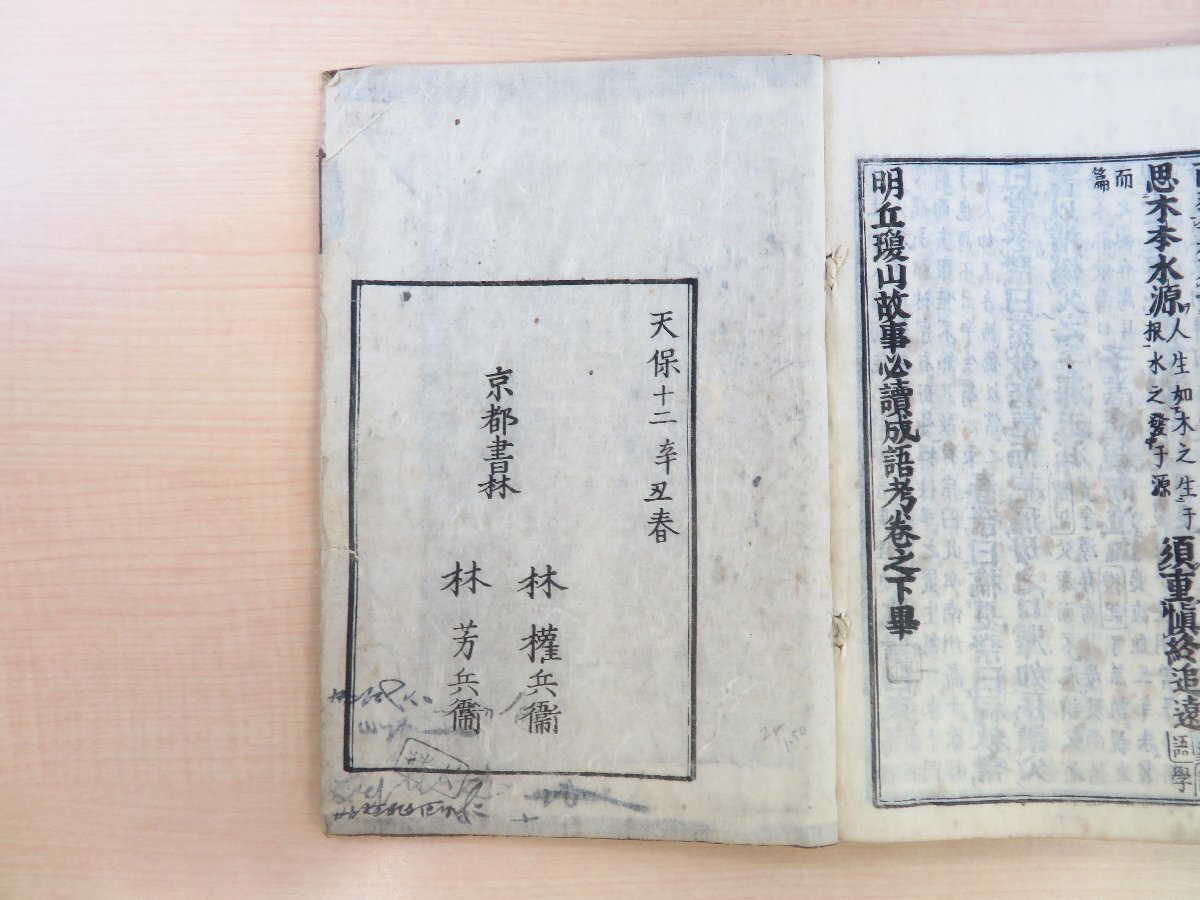 思木本水源 人生如木之生于根水之發于源 須重愼終追遠 語學
而篇
明丘瓊山故事必讀成語考卷之下畢
天保十二辛丑春
京都書林
林 權兵衞
林 芳兵衞